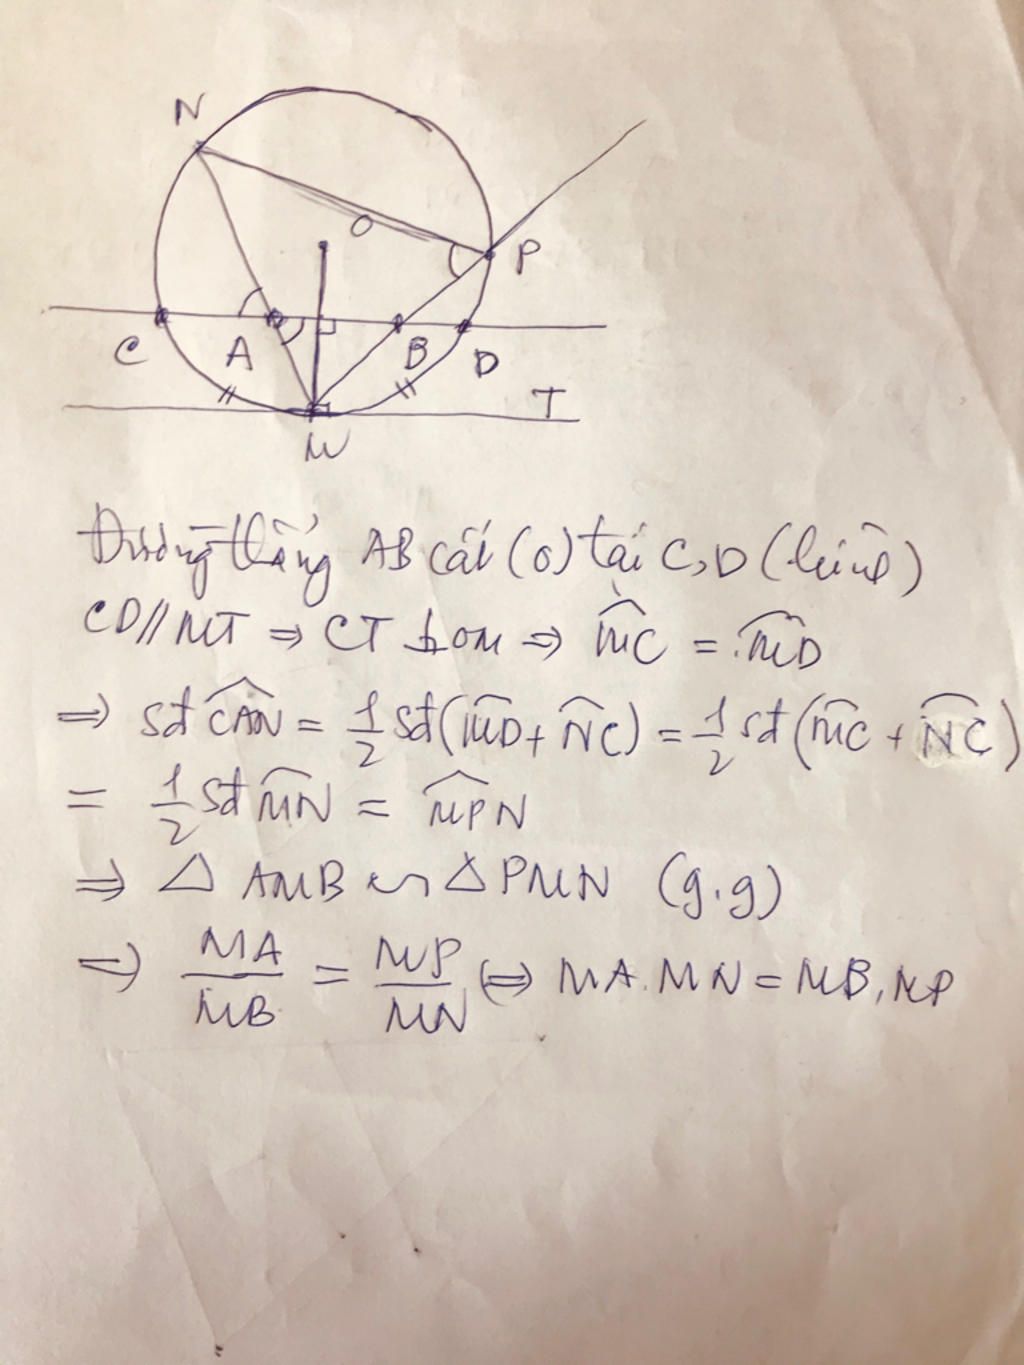 N
O
P
C
A
B
D
T
M
Đường thẳng AB cắt (O) tại C, D (hình)
CD // MT ⇒ CT ⊥ OM ⇒ \overset{\frown}{MC} = \overset{\frown}{MD}
⇒ Sđ \widehat{CAN} = \frac{1}{2} Sđ (\overset{\frown}{MD} + \overset{\frown}{NC}) = \frac{1}{2} sđ (\overset{\frown}{MC} + \overset{\frown}{NC})
= \frac{1}{2} Sđ \overset{\frown}{MN} = \widehat{MPN}
⇒ △ AMB ∽ △ PMN (g.g)
⇒ \frac{MA}{MB} = \frac{MP}{MN} ⇔ MA.MN = MB.MP